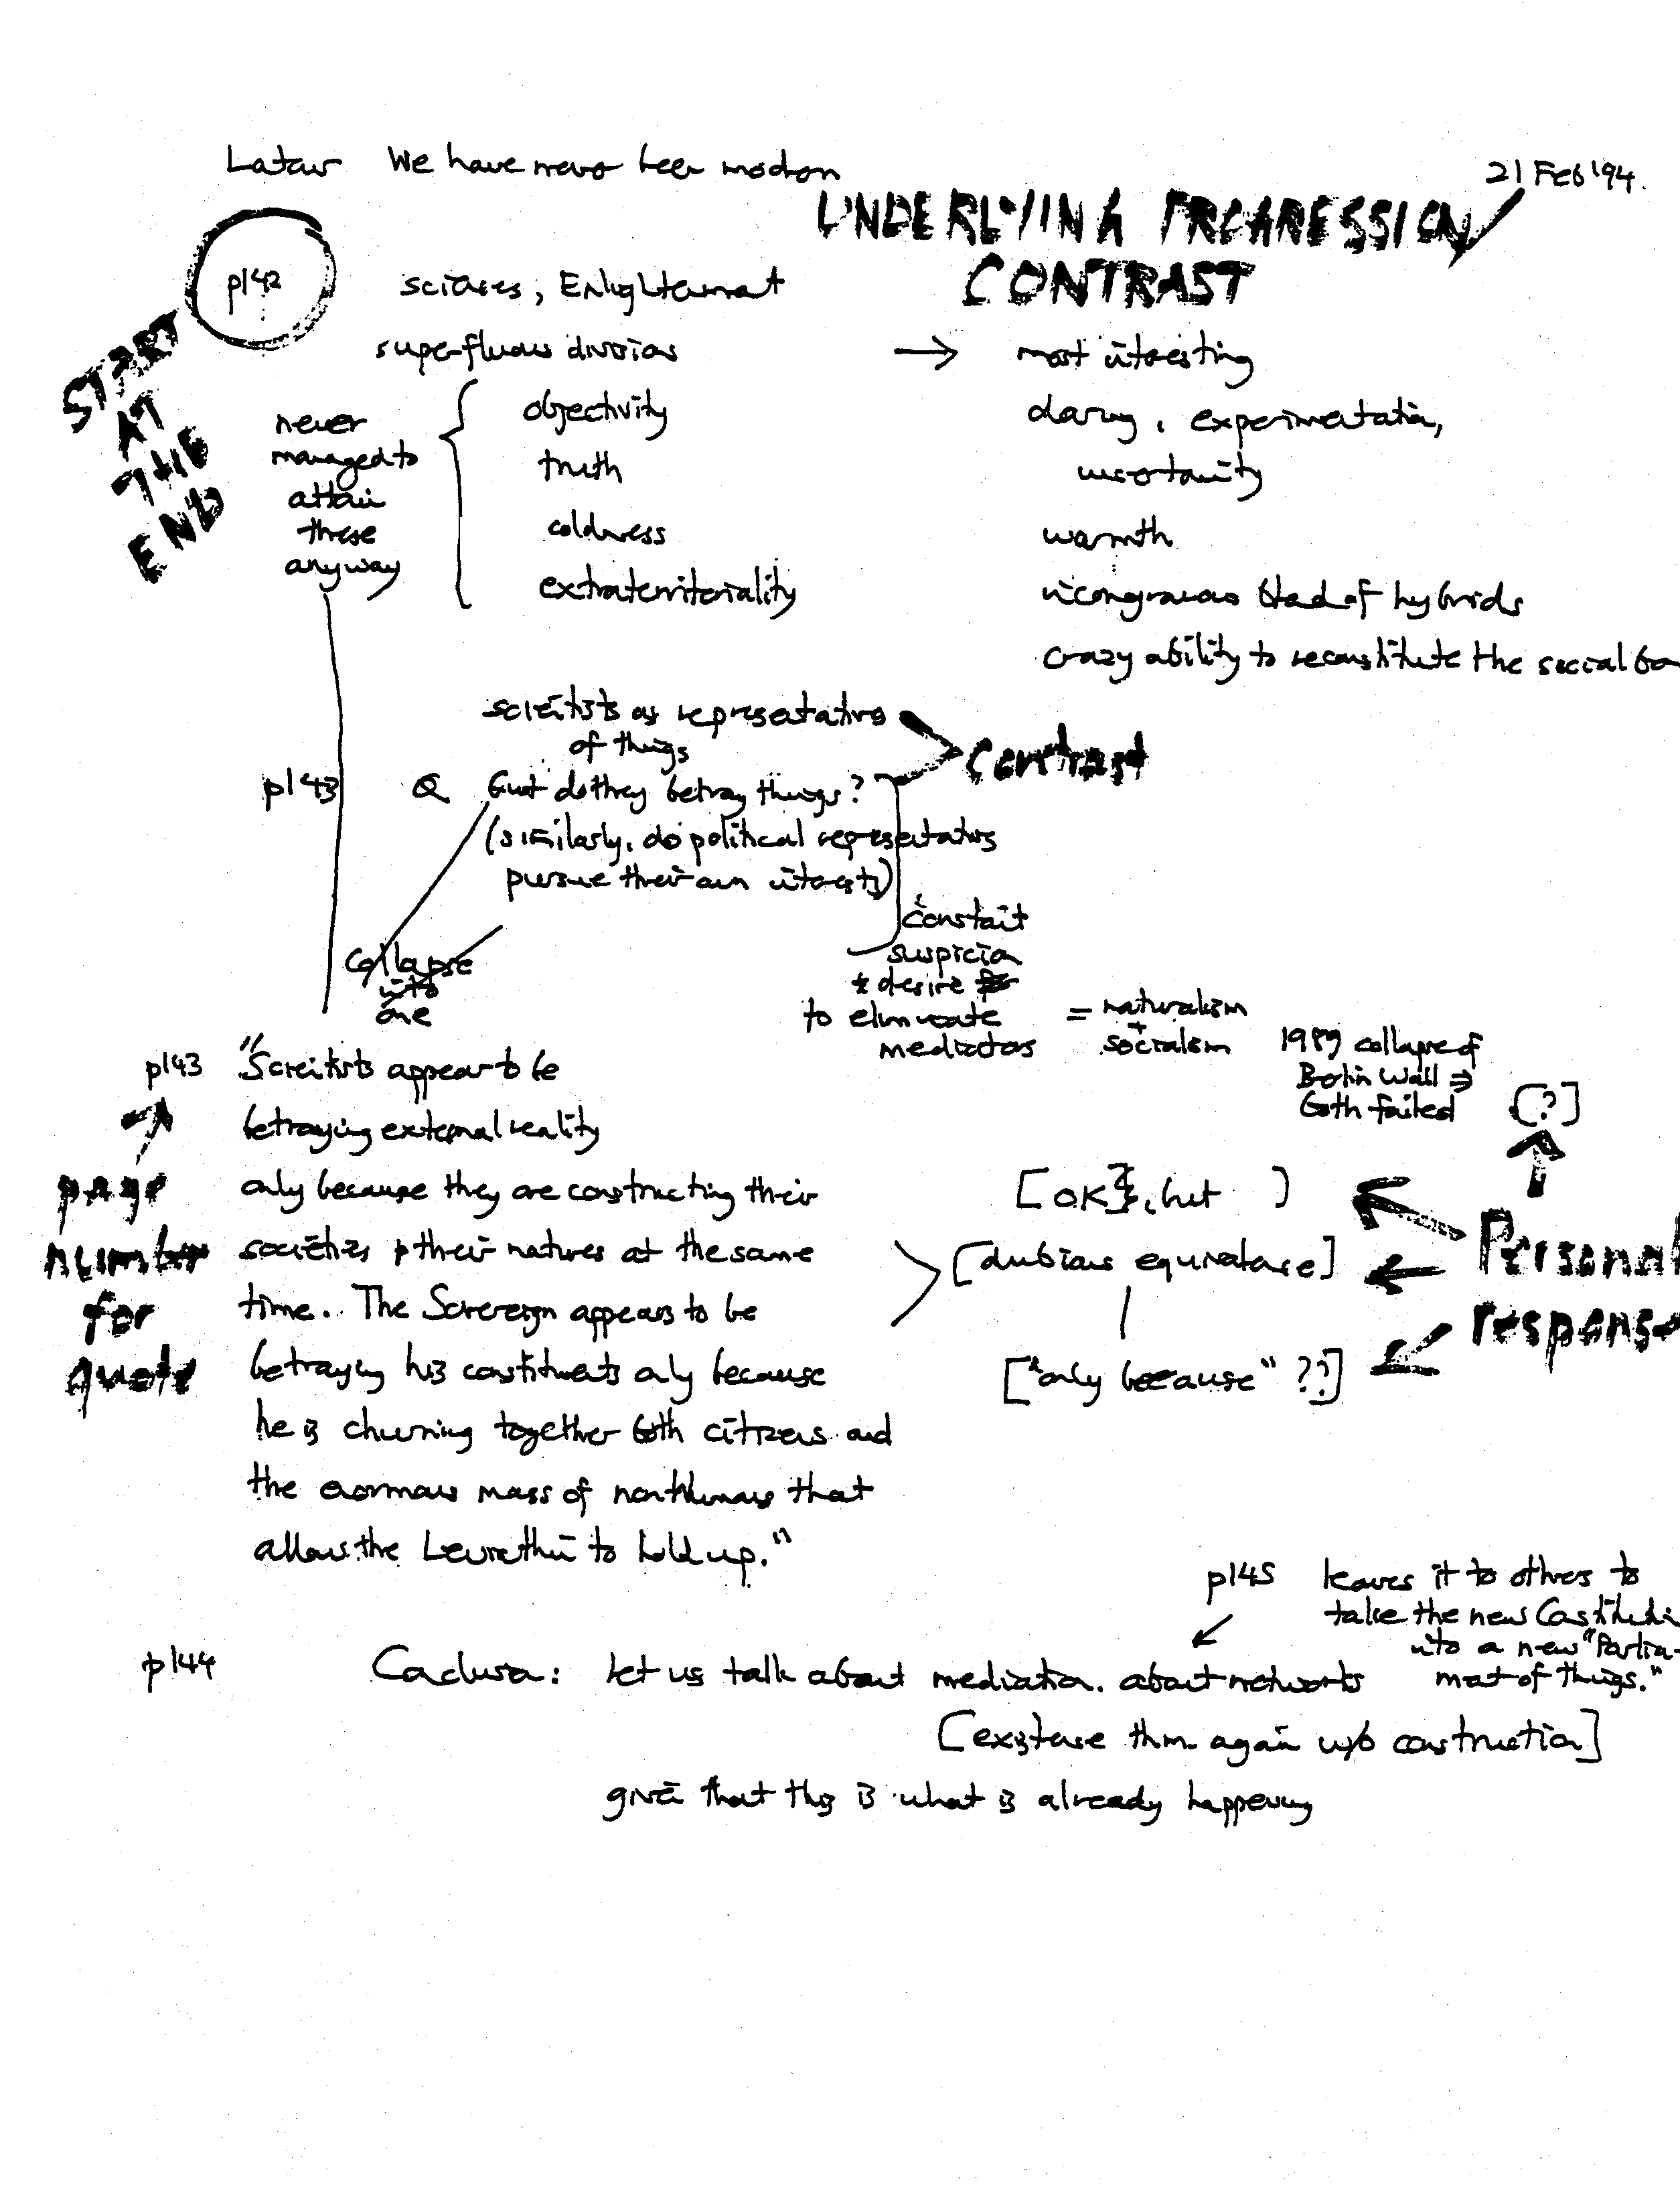 Latour We have never been modern
21 Feb '94.
UNDERLYING PROGRESSION/
CONTRAST
START
AT
THE
END
p142 sciences, Enlightenment
superfluous divisions → most interesting
never
managed to
attain
these
anyway
objectivity daring, experimentation,
uncertainty
truth
coldness warmth
extraterritoriality incongruous blend of hybrids
crazy ability to reconstitute the social bo
scientists as representatives
of things
Contrast
p143 Q But do they betray things?
(similarly, do political representatives
pursue their own interests)
Collapse
into
one
Constant
suspicion
+ desire
to eliminate
mediators
= naturalism
+
socialism
1989 collapse of
Berlin Wall ⇒
both failed
[?]
p143 "Scientists appear to be
betraying external reality
only because they are constructing their
societies & their natures at the same
time. The Sovereign appears to be
betraying his constituents only because
he is churning together both citizens and
the enormous mass of nonhumans that
allows the Leviathan to hold up."
page
number
for
quote
[OK], but ]
[dubious equivalence]
["only because" ??]
Personal
response
p145 leaves it to others to
take the new Constituti
into a new "Parlia-
ment of things."
p144 Conclusion: let us talk about mediation, about networks
[existence thm again w/o construction]
given that this is what is already happening